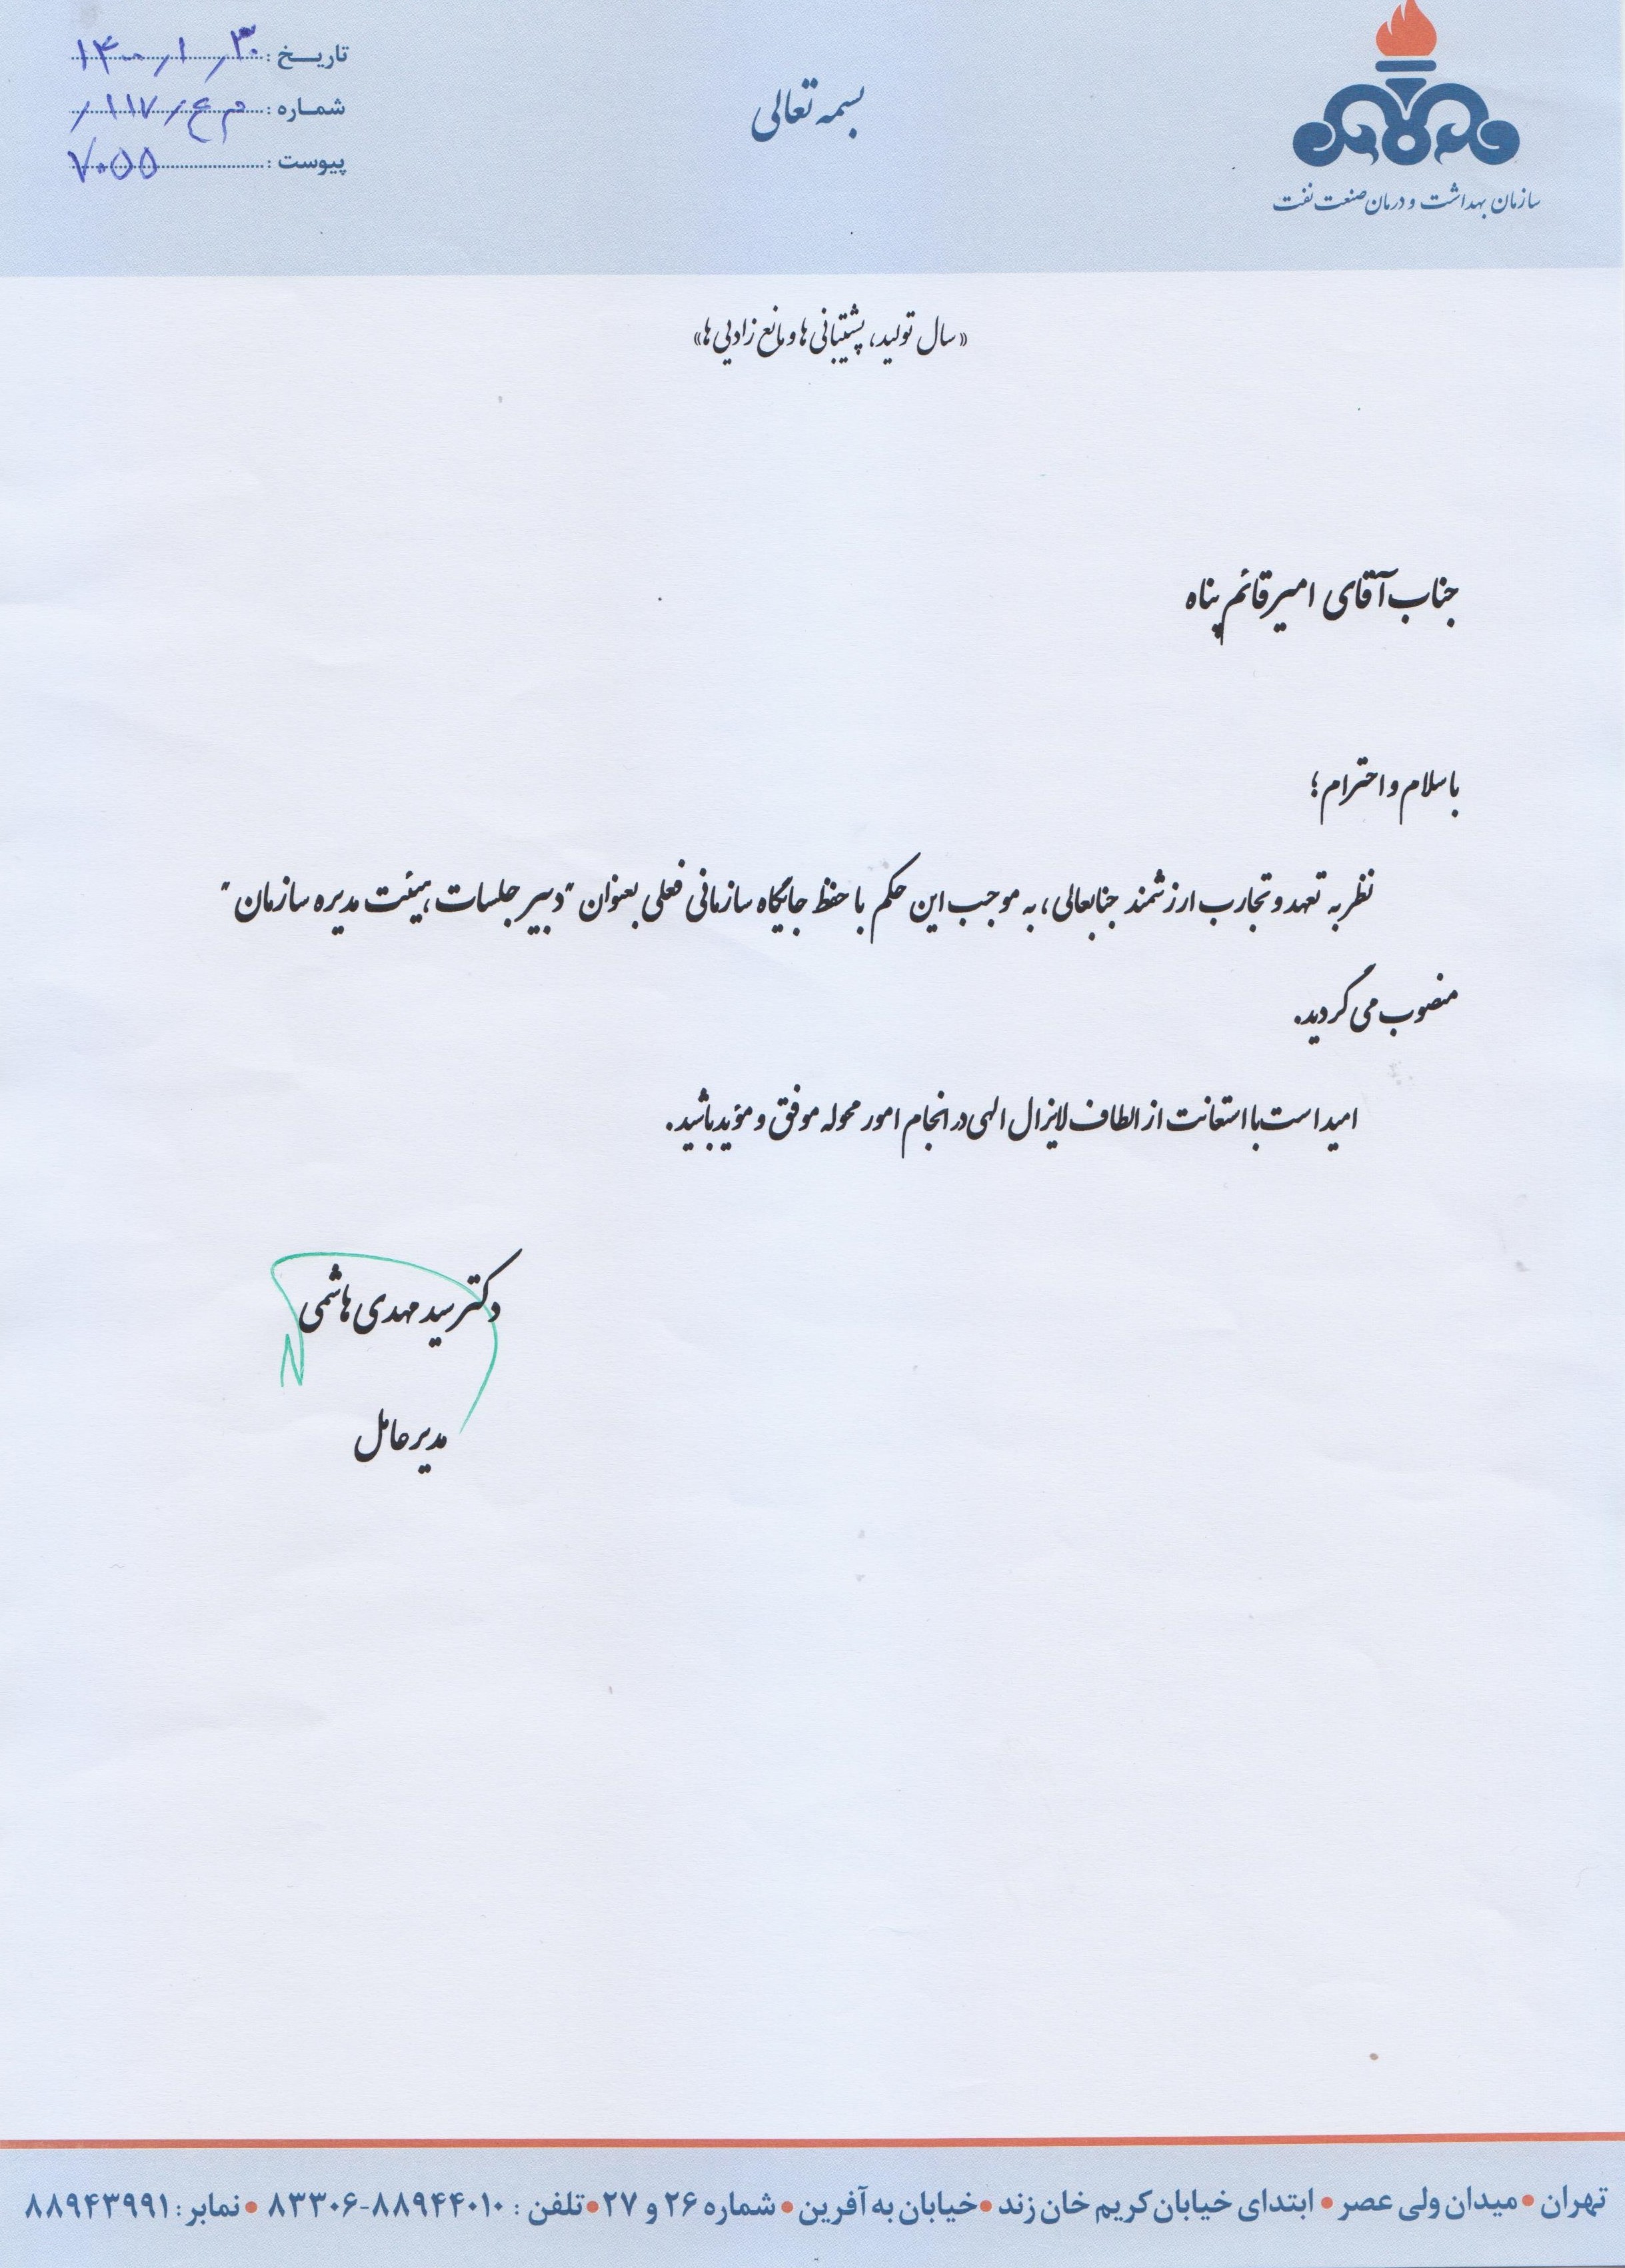 تاریخ: ۱۴۰۰/۱/۳۰
شماره: م ع/۱۱۷/
پیوست: ۷۰۵۵
بسمه تعالی
سازمان بهداشت و درمان صنعت نفت
«سال تولید، پشتیبانی ها و مانع زدایی ها»
جناب آقای امیر قائم پناه
با سلام و احترام؛
نظر به تعهد و تجارب ارزشمند جنابعالی، به موجب این حکم با حفظ جایگاه سازمانی فعلی بعنوان "دبیر جلسات هیئت مدیره سازمان"
منصوب می گردید.
امید است با استعانت از الطاف لایزال الهی در انجام امور محوله موفق و مؤید باشید.
دکتر سید مهدی هاشمی
مدیر عامل
تهران • میدان ولی عصر • ابتدای خیابان کریم خان زند • خیابان به آفرین • شماره ۲۶ و ۲۷ • تلفن: ۸۸۹۴۴۰۱۰-۸۳۳۰۶ • نمابر: ۸۸۹۴۳۹۹۱